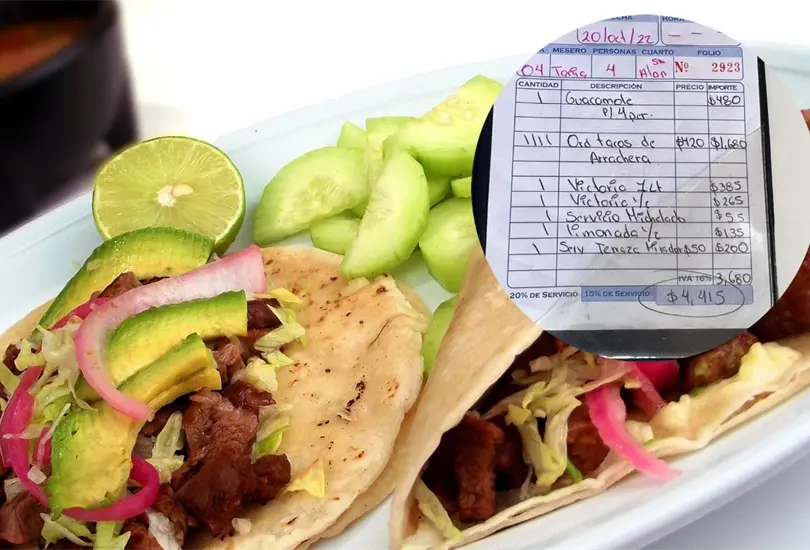 FECHA HORA
20/oct/22 - - -
MESERO PERSONAS CUARTO FOLIO
04 Tania 4 Nº 2923
CANTIDAD DESCRIPCIÓN PRECIO IMPORTE
1 Guacamole $480
P/4 per.
1111 Ord tacos de $420 $1,680
Arrachera
1 Victoria 1Lt $385
1 Victoria 1/2 $265
1 Servicio Michelado $55
1 Limonada 1/2 $135
1 Serv Terraza Mirador $50 $200
IVA 16% 3,680
20% DE SERVICIO 15% DE SERVICIO $4,415